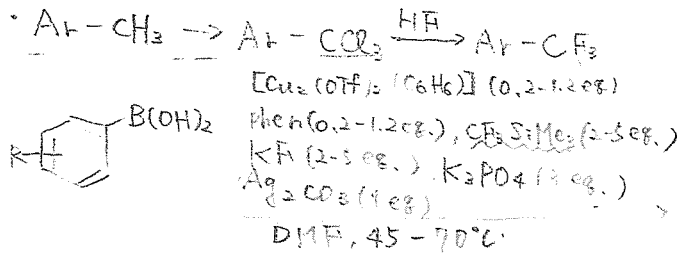 · Ar-CH3 → Ar-CCl3 HF → Ar-CF3
[Cu2(OTf)2(C6H6)] (0.2-1.2eg)
B(OH)2 phen(0.2-1.2eg.), CF3SiMe3(2-5eg.)
R KF(2-5eg.) K3PO4(3eg.)
Ag2CO3(1eg)
DMF, 45-70°C.